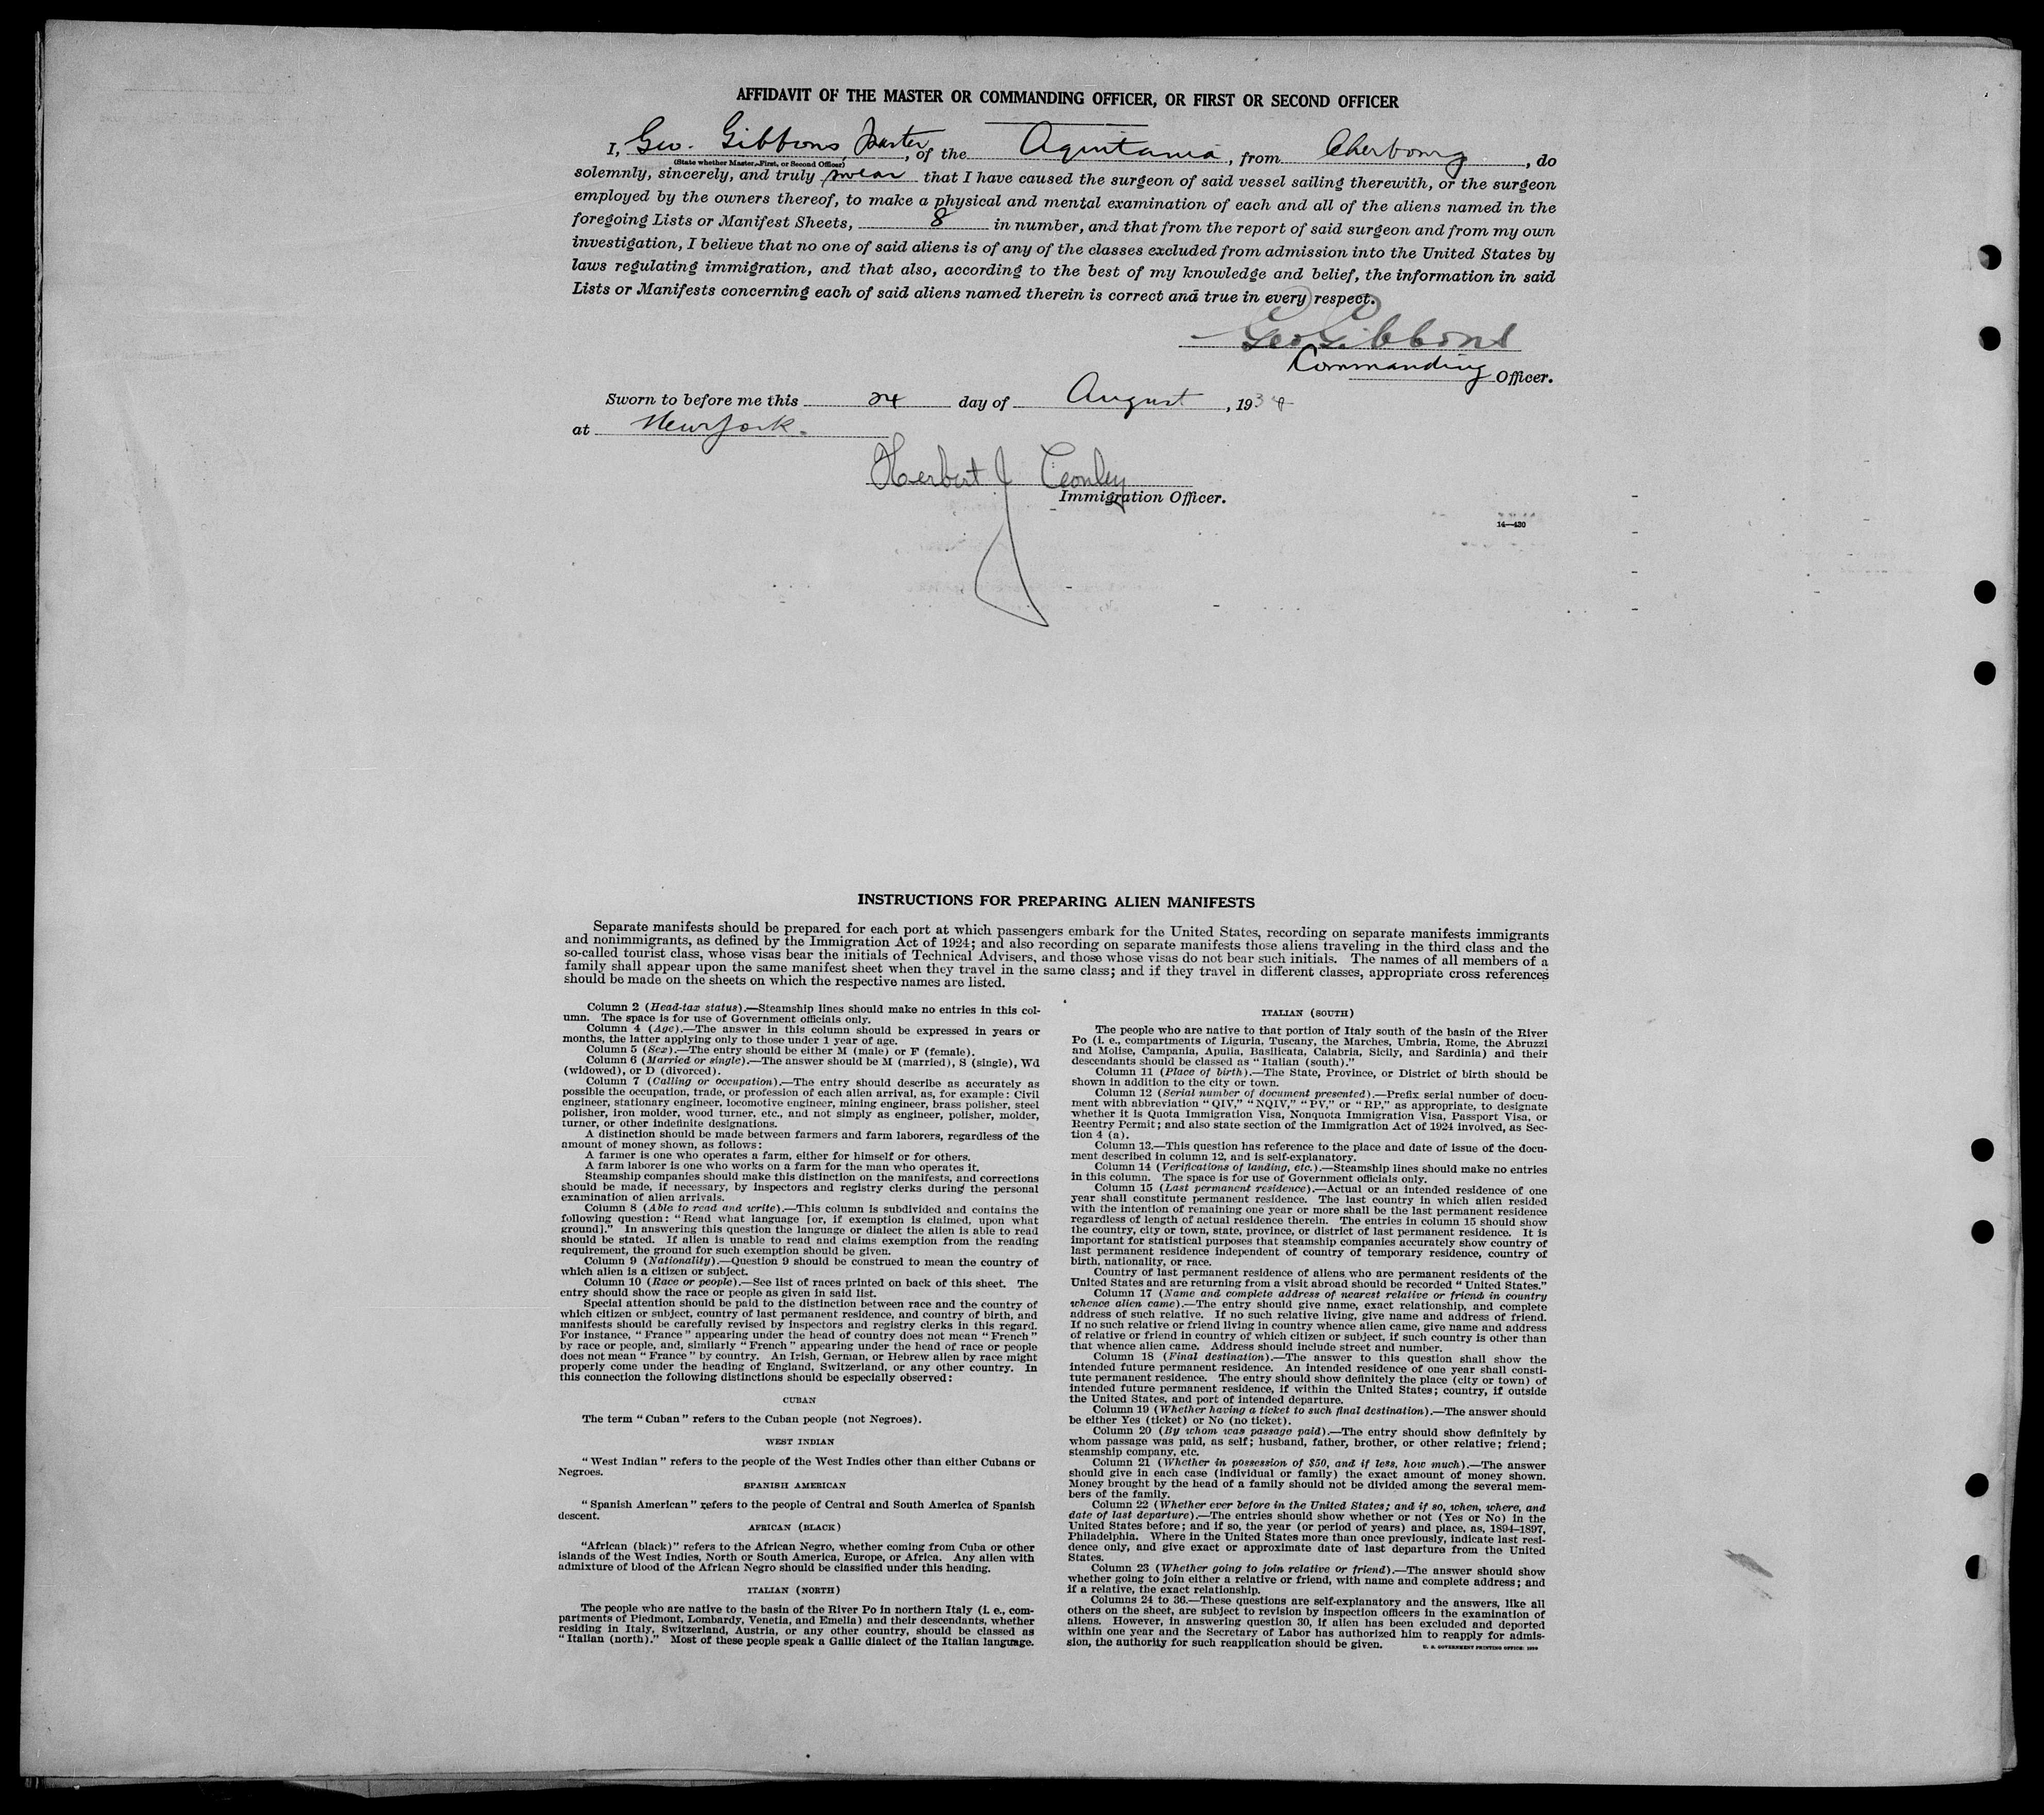 AFFIDAVIT OF THE MASTER OR COMMANDING OFFICER, OR FIRST OR SECOND OFFICER
I, Geo. Gibbons, Master, of the Aquitania, from Cherbourg, do
(State whether Master, First, or Second Officer)
solemnly, sincerely, and truly swear that I have caused the surgeon of said vessel sailing therewith, or the surgeon
employed by the owners thereof, to make a physical and mental examination of each and all of the aliens named in the
foregoing Lists or Manifest Sheets, 8 in number, and that from the report of said surgeon and from my own
investigation, I believe that no one of said aliens is of any of the classes excluded from admission into the United States by
laws regulating immigration, and that also, according to the best of my knowledge and belief, the information in said
Lists or Manifests concerning each of said aliens named therein is correct and true in every respect.
Geo Gibbons
Commanding Officer.
Sworn to before me this 24 day of August, 19
at New York.
Herbert J Conley
Immigration Officer.
14—430
INSTRUCTIONS FOR PREPARING ALIEN MANIFESTS
Separate manifests should be prepared for each port at which passengers embark for the United States, recording on separate manifests immigrants
and nonimmigrants, as defined by the Immigration Act of 1924; and also recording on separate manifests those aliens traveling in the third class and the
so-called tourist class, whose visas bear the initials of Technical Advisers, and those whose visas do not bear such initials. The names of all members of a
family shall appear upon the same manifest sheet when they travel in the same class; and if they travel in different classes, appropriate cross references
should be made on the sheets on which the respective names are listed.
Column 2 (Head-tax status).—Steamship lines should make no entries in this col-
umn. The space is for use of Government officials only.
Column 4 (Age).—The answer in this column should be expressed in years or
months, the latter applying only to those under 1 year of age.
Column 5 (Sex).—The entry should be either M (male) or F (female).
Column 6 (Married or single).—The answer should be M (married), S (single), Wd
(widowed), or D (divorced).
Column 7 (Calling or occupation).—The entry should describe as accurately as
possible the occupation, trade, or profession of each alien arrival, as, for example: Civil
engineer, stationary engineer, locomotive engineer, mining engineer, brass polisher, steel
polisher, iron molder, wood turner, etc., and not simply as engineer, polisher, molder,
turner, or other indefinite designations.
A distinction should be made between farmers and farm laborers, regardless of the
amount of money shown, as follows:
A farmer is one who operates a farm, either for himself or for others.
A farm laborer is one who works on a farm for the man who operates it.
Steamship companies should make this distinction on the manifests, and corrections
should be made, if necessary, by inspectors and registry clerks during the personal
examination of alien arrivals.
Column 8 (Able to read and write).—This column is subdivided and contains the
following question: “Read what language [or, if exemption is claimed, upon what
ground].” In answering this question the language or dialect the alien is able to read
should be stated. If alien is unable to read and claims exemption from the reading
requirement, the ground for such exemption should be given.
Column 9 (Nationality).—Question 9 should be construed to mean the country of
which alien is a citizen or subject.
Column 10 (Race or people).—See list of races printed on back of this sheet. The
entry should show the race or people as given in said list.
Special attention should be paid to the distinction between race and the country of
which citizen or subject, country of last permanent residence, and country of birth, and
manifests should be carefully revised by inspectors and registry clerks in this regard.
For instance, “France” appearing under the head of country does not mean “French”
by race or people, and, similarly “French” appearing under the head of race or people
does not mean “France” by country. An Irish, German, or Hebrew alien by race might
properly come under the heading of England, Switzerland, or any other country. In
this connection the following distinctions should be especially observed:
CUBAN
The term “Cuban” refers to the Cuban people (not Negroes).
WEST INDIAN
“West Indian” refers to the people of the West Indies other than either Cubans or
Negroes.
SPANISH AMERICAN
“Spanish American” refers to the people of Central and South America of Spanish
descent.
AFRICAN (BLACK)
“African (black)” refers to the African Negro, whether coming from Cuba or other
islands of the West Indies, North or South America, Europe, or Africa. Any alien with
admixture of blood of the African Negro should be classified under this heading.
ITALIAN (NORTH)
The people who are native to the basin of the River Po in northern Italy (i. e., com-
partments of Piedmont, Lombardy, Venetia, and Emelia) and their descendants, whether
residing in Italy, Switzerland, Austria, or any other country, should be classed as
“Italian (north).” Most of these people speak a Gallic dialect of the Italian language.
ITALIAN (SOUTH)
The people who are native to that portion of Italy south of the basin of the River
Po (i. e., compartments of Liguria, Tuscany, the Marches, Umbria, Rome, the Abruzzi
and Molise, Campania, Apulia, Basilicata, Calabria, Sicily, and Sardinia) and their
descendants should be classed as “Italian (south).”
Column 11 (Place of birth).—The State, Province, or District of birth should be
shown in addition to the city or town.
Column 12 (Serial number of document presented).—Prefix serial number of docu-
ment with abbreviation “QIV,” “NQIV,” “PV,” or “RP,” as appropriate, to designate
whether it is Quota Immigration Visa, Nonquota Immigration Visa, Passport Visa, or
Reentry Permit; and also state section of the Immigration Act of 1924 involved, as Sec-
tion 4 (a).
Column 13.—This question has reference to the place and date of issue of the docu-
ment described in column 12, and is self-explanatory.
Column 14 (Verifications of landing, etc.).—Steamship lines should make no entries
in this column. The space is for use of Government officials only.
Column 15 (Last permanent residence).—Actual or an intended residence of one
year shall constitute permanent residence. The last country in which alien resided
with the intention of remaining one year or more shall be the last permanent residence
regardless of length of actual residence therein. The entries in column 15 should show
the country, city or town, state, province, or district of last permanent residence. It is
important for statistical purposes that steamship companies accurately show country of
last permanent residence independent of country of temporary residence, country of
birth, nationality, or race.
Country of last permanent residence of aliens who are permanent residents of the
United States and are returning from a visit abroad should be recorded “United States.”
Column 17 (Name and complete address of nearest relative or friend in country
whence alien came).—The entry should give name, exact relationship, and complete
address of such relative. If no such relative living, give name and address of friend.
If no such relative or friend living in country whence alien came, give name and address
of relative or friend in country of which citizen or subject, if such country is other than
that whence alien came. Address should include street and number.
Column 18 (Final destination).—The answer to this question shall show the
intended future permanent residence. An intended residence of one year shall consti-
tute permanent residence. The entry should show definitely the place (city or town) of
intended future permanent residence, if within the United States; country, if outside
the United States, and port of intended departure.
Column 19 (Whether having a ticket to such final destination).—The answer should
be either Yes (ticket) or No (no ticket).
Column 20 (By whom was passage paid).—The entry should show definitely by
whom passage was paid, as self; husband, father, brother, or other relative; friend;
steamship company, etc.
Column 21 (Whether in possession of $50, and if less, how much).—The answer
should give in each case (individual or family) the exact amount of money shown.
Money brought by the head of a family should not be divided among the several mem-
bers of the family.
Column 22 (Whether ever before in the United States; and if so, when, where, and
date of last departure).—The entries should show whether or not (Yes or No) in the
United States before; and if so, the year (or period of years) and place, as, 1894–1897,
Philadelphia. Where in the United States more than once previously, indicate last resi-
dence only, and give exact or approximate date of last departure from the United
States.
Column 23 (Whether going to join relative or friend).—The answer should show
whether going to join either a relative or friend, with name and complete address; and
if a relative, the exact relationship.
Columns 24 to 36.—These questions are self-explanatory and the answers, like all
others on the sheet, are subject to revision by inspection officers in the examination of
aliens. However, in answering question 30, if alien has been excluded and deported
within one year and the Secretary of Labor has authorized him to reapply for admis-
sion, the authority for such reapplication should be given.
U. S. GOVERNMENT PRINTING OFFICE: